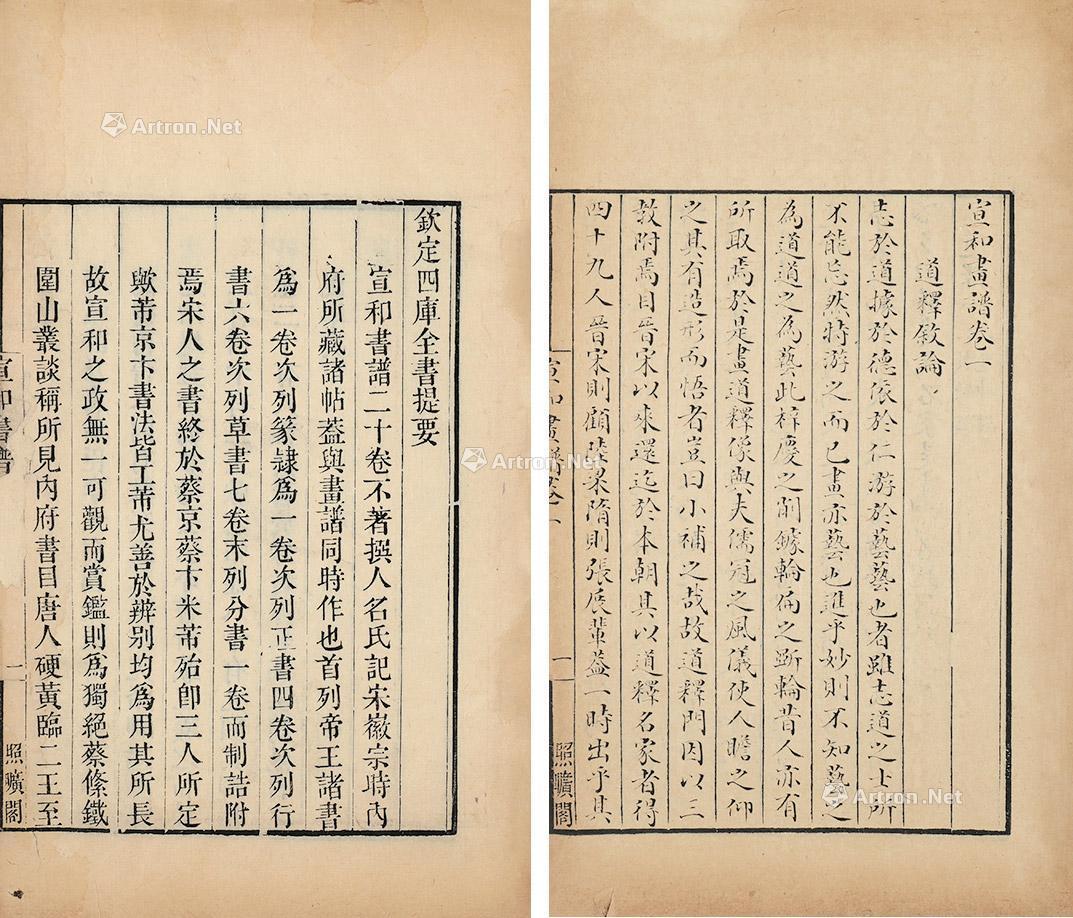 宣和畫譜卷一
道釋敘論
志於道據於德依於仁游於藝藝也者雖志道之士所
不能忘然特游之而已畫亦藝也進乎妙則不知藝之
為道道之為藝此梓慶之削鐻輪扁之斲輪昔人亦有
所取焉於是畫道釋像與夫儒冠之風儀使人瞻之仰
之其有造形而悟者豈曰小補之哉故道釋門因以三
教附焉自晉宋以來還迄於本朝其以道釋名家者得
四十九人晉宋則顧陸梁隋則張展輩葢一時出乎其
宣和畫譜卷一
一
照曠閣
欽定四庫全書提要
宣和書譜二十卷不著撰人名氏記宋徽宗時內
府所藏諸帖葢與畫譜同時作也首列帝王諸書
爲一卷次列篆隷爲一卷次列正書四卷次列行
書六卷次列草書七卷末列分書一卷而制誥附
焉宋人之書終於蔡京蔡卞米芾殆卽三人所定
歟芾京卞書法皆工芾尤善於辨別均爲用其所長
故宣和之政無一可觀而賞鑑則爲獨絕蔡絛鐵
圍山叢談稱所見內府書目唐人硬黃臨二王至
宣和書譜
一
照曠閣
Artron.Net
Artron.Net
Artron.Net